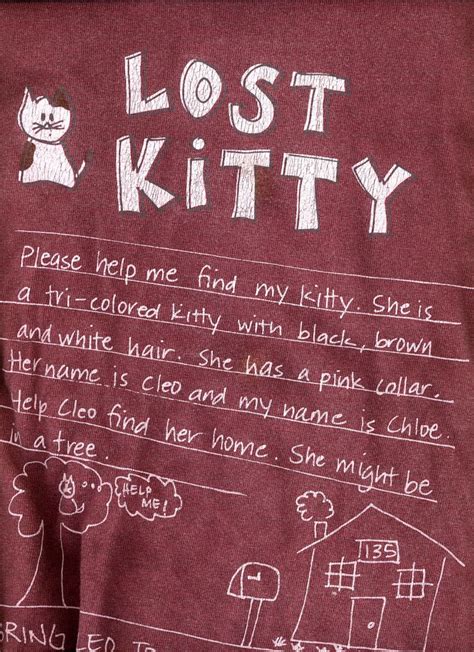 LOST
KiTTY
Please help me find my kitty. She is
a tri-colored kitty with black, brown
and white hair. She has a pink collar.
Her name is Cleo and my name is Chloe.
Help Cleo find her home. She might be
in a tree.
HELP
ME!
135